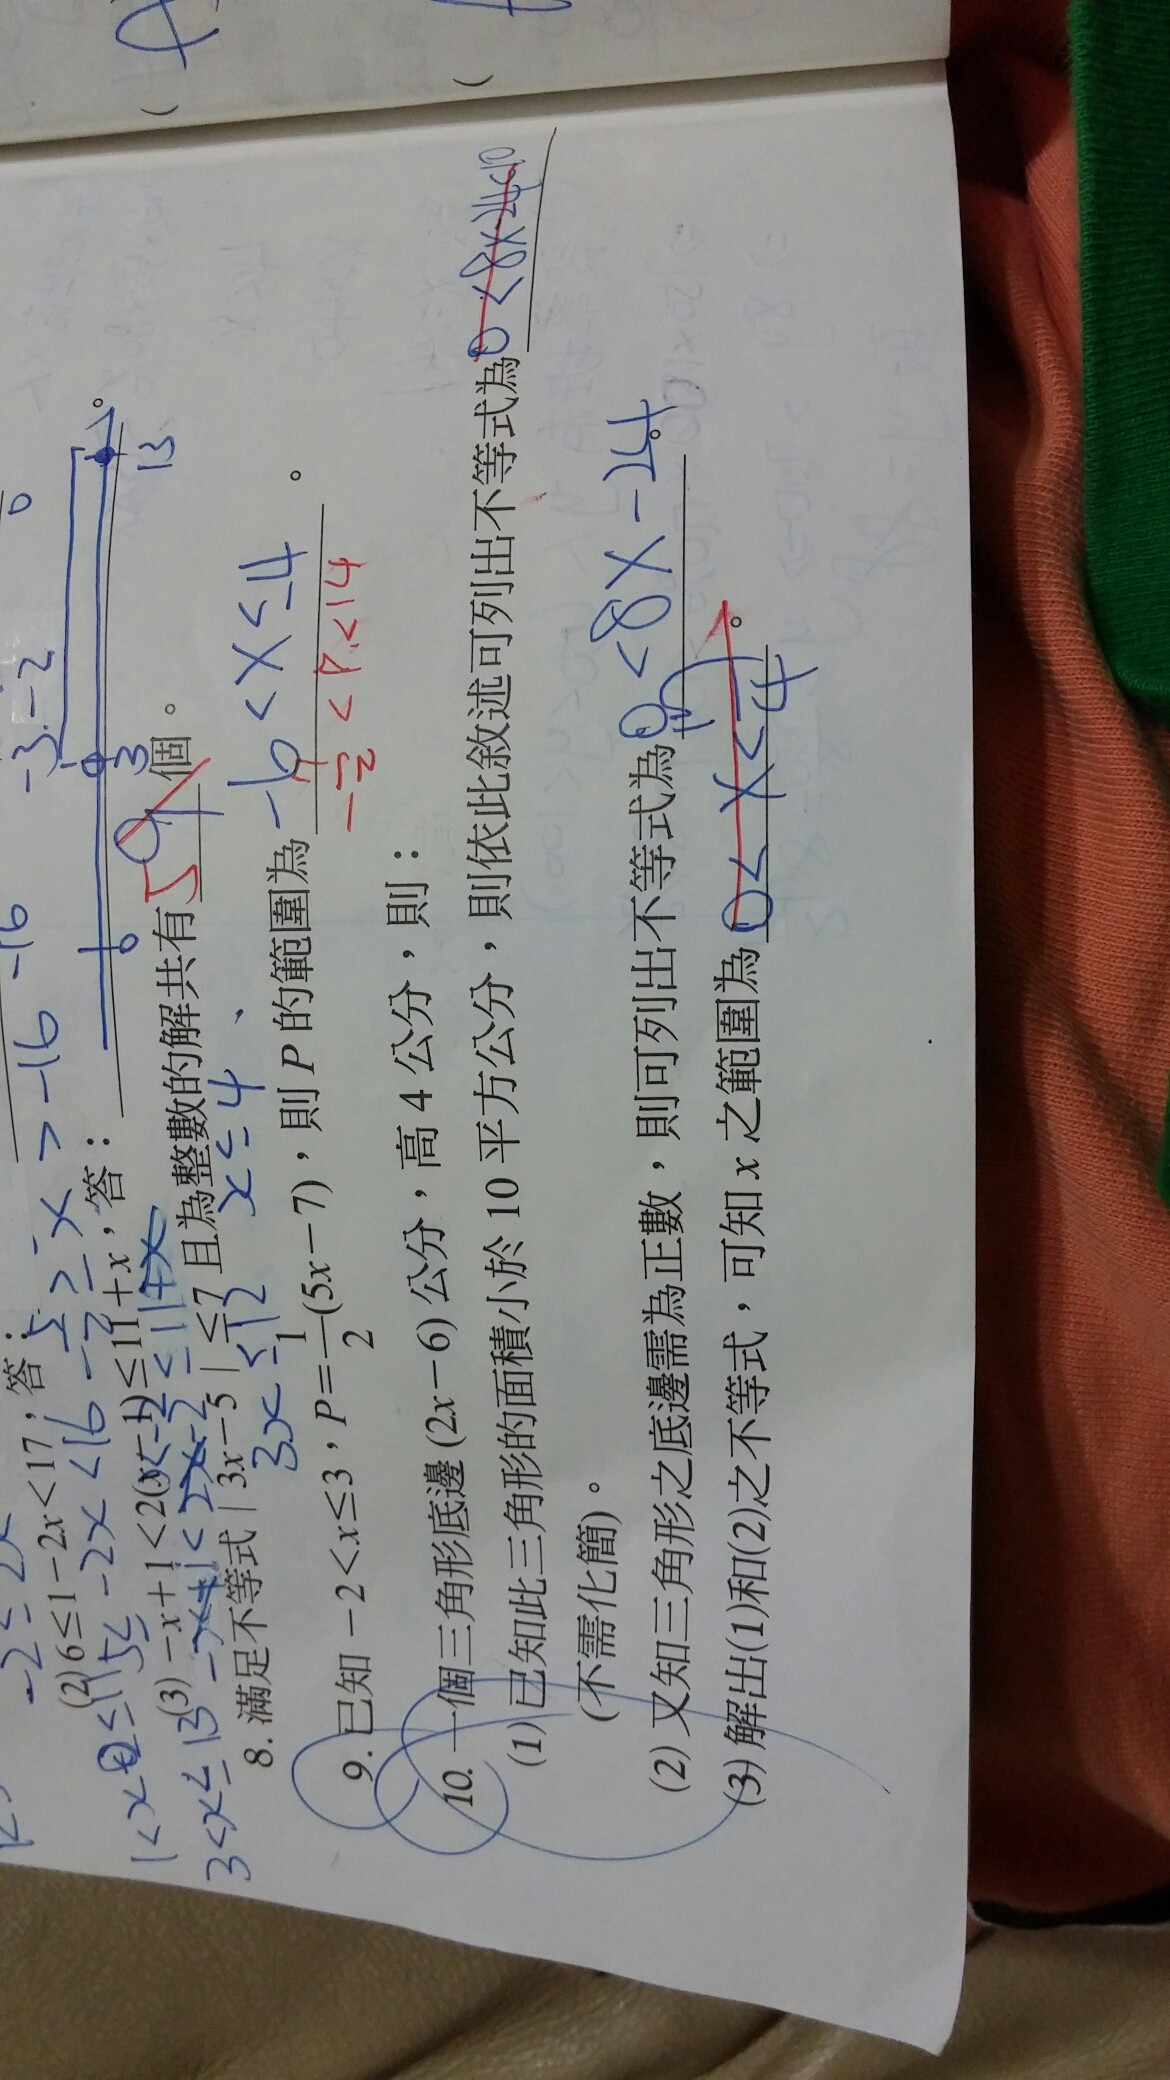 (2) 6≤1-2x<17,答:
5≤-2x<16
-16
> -x > -16
(3) -x+1<2(x-1)≤11+x,答:
-x+1<2x-2≤11+x
3<x≤13
-3 -2
0 3 13
8. 滿足不等式|3x-5|≤7 且為整數的解共有 5 個。
3x≤12 x≤4
9. 已知-2<x≤3,P=1/2(5x-7),則 P 的範圍為 -6<x≤4。
<P<14
10. 一個三角形底邊(2x-6)公分,高 4 公分,則:
(1) 已知此三角形的面積小於 10 平方公分,則依此敘述可列出不等式為 0<8x-24<10
(不需化簡)。
(2) 又知三角形之底邊需為正數,則可列出不等式為 0<8x-24。
(3) 解出(1)和(2)之不等式,可知 x 之範圍為 0<x<4。